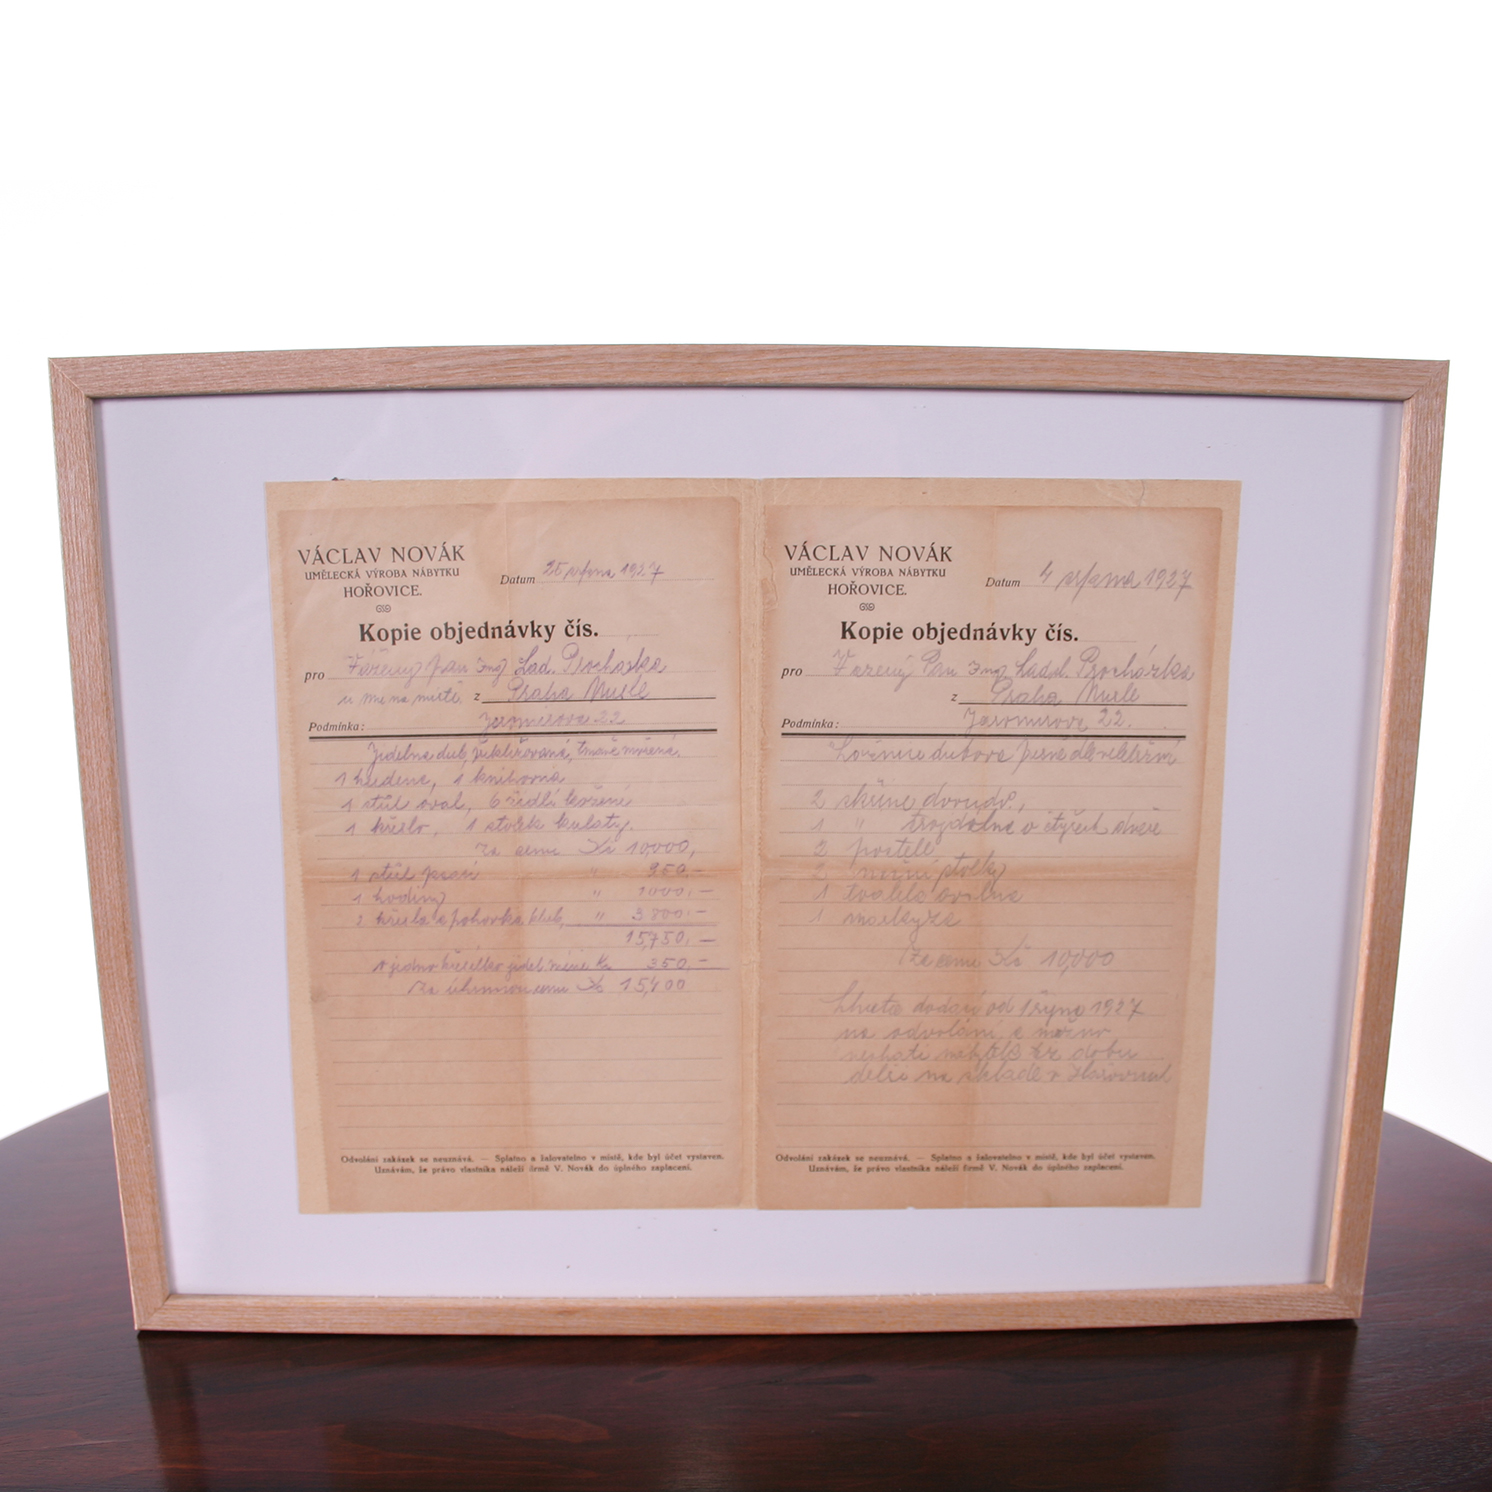 VÁCLAV NOVÁK
UMĚLECKÁ VÝROBA NÁBYTKU
HOŘOVICE.
Datum 25 srpna 1927
Kopie objednávky čís.
pro Vážený pan Ing Lad. Procházka
z Praha Nusle
Podmínka: Jaromírova 22
Jídelna dub,
1 kredenc, 1 knihovna
1 stůl oval, 6 židlí kožené
1 křeslo, 1 stolek kulatý.
za cenu Kč 10,000,
1 stůl psací " 950.—
1 hodiny " 1000.—
2 křesla a pohovka klub, " 3800.—
15,750.—
jedno jídel méně Kč 350.—
za úhrnnou cenu Kč 15,400
Odvolání zakázek se neuznává. — Splatno a žalovatelno v místě, kde byl účet vystaven.
Uznávám, že právo vlastníka náleží firmě V. Novák do úplného zaplacení.
VÁCLAV NOVÁK
UMĚLECKÁ VÝROBA NÁBYTKU
HOŘOVICE.
Datum 4 srpna 1927
Kopie objednávky čís.
pro Vážený Pan Ing. Ladisl. Procházka
z Praha Nusle
Podmínka: Jaromírova 22.
Ložnice dubová
2 skříně dvoudv.,
1 " trojdílná o čtyřech dveře
2 postele
2 noční stolky
1 toaleta
1
za cenu Kč 10,000
Lhůta dodací od 1 října 1927
na odvolání a možno
nechati dobu
na skladě v Hořovicích
Odvolání zakázek se neuznává. — Splatno a žalovatelno v místě, kde byl účet vystaven.
Uznávám, že právo vlastníka náleží firmě V. Novák do úplného zaplacení.